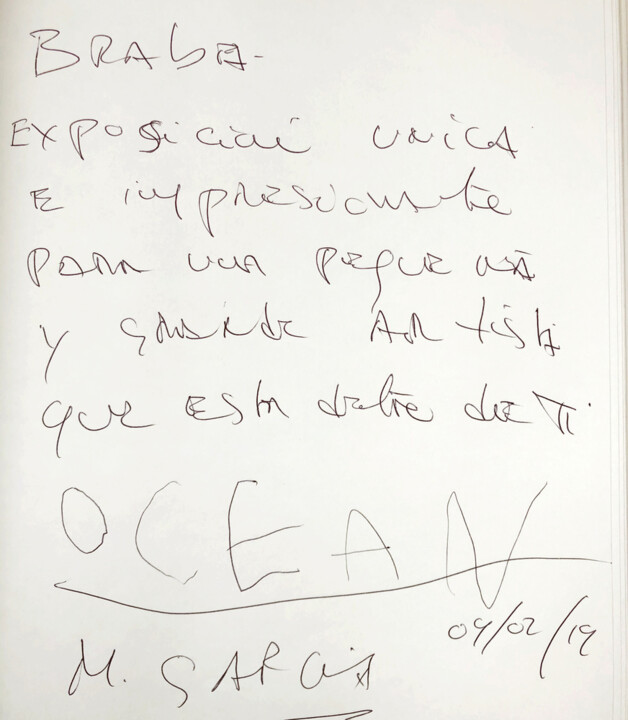 BRABA-
EXPOSICIOI UNICA
E impresionante
para una pequeña
y grande ARtista
que esta detre de TI
OCEAN
09/02/19
M. GARCIA